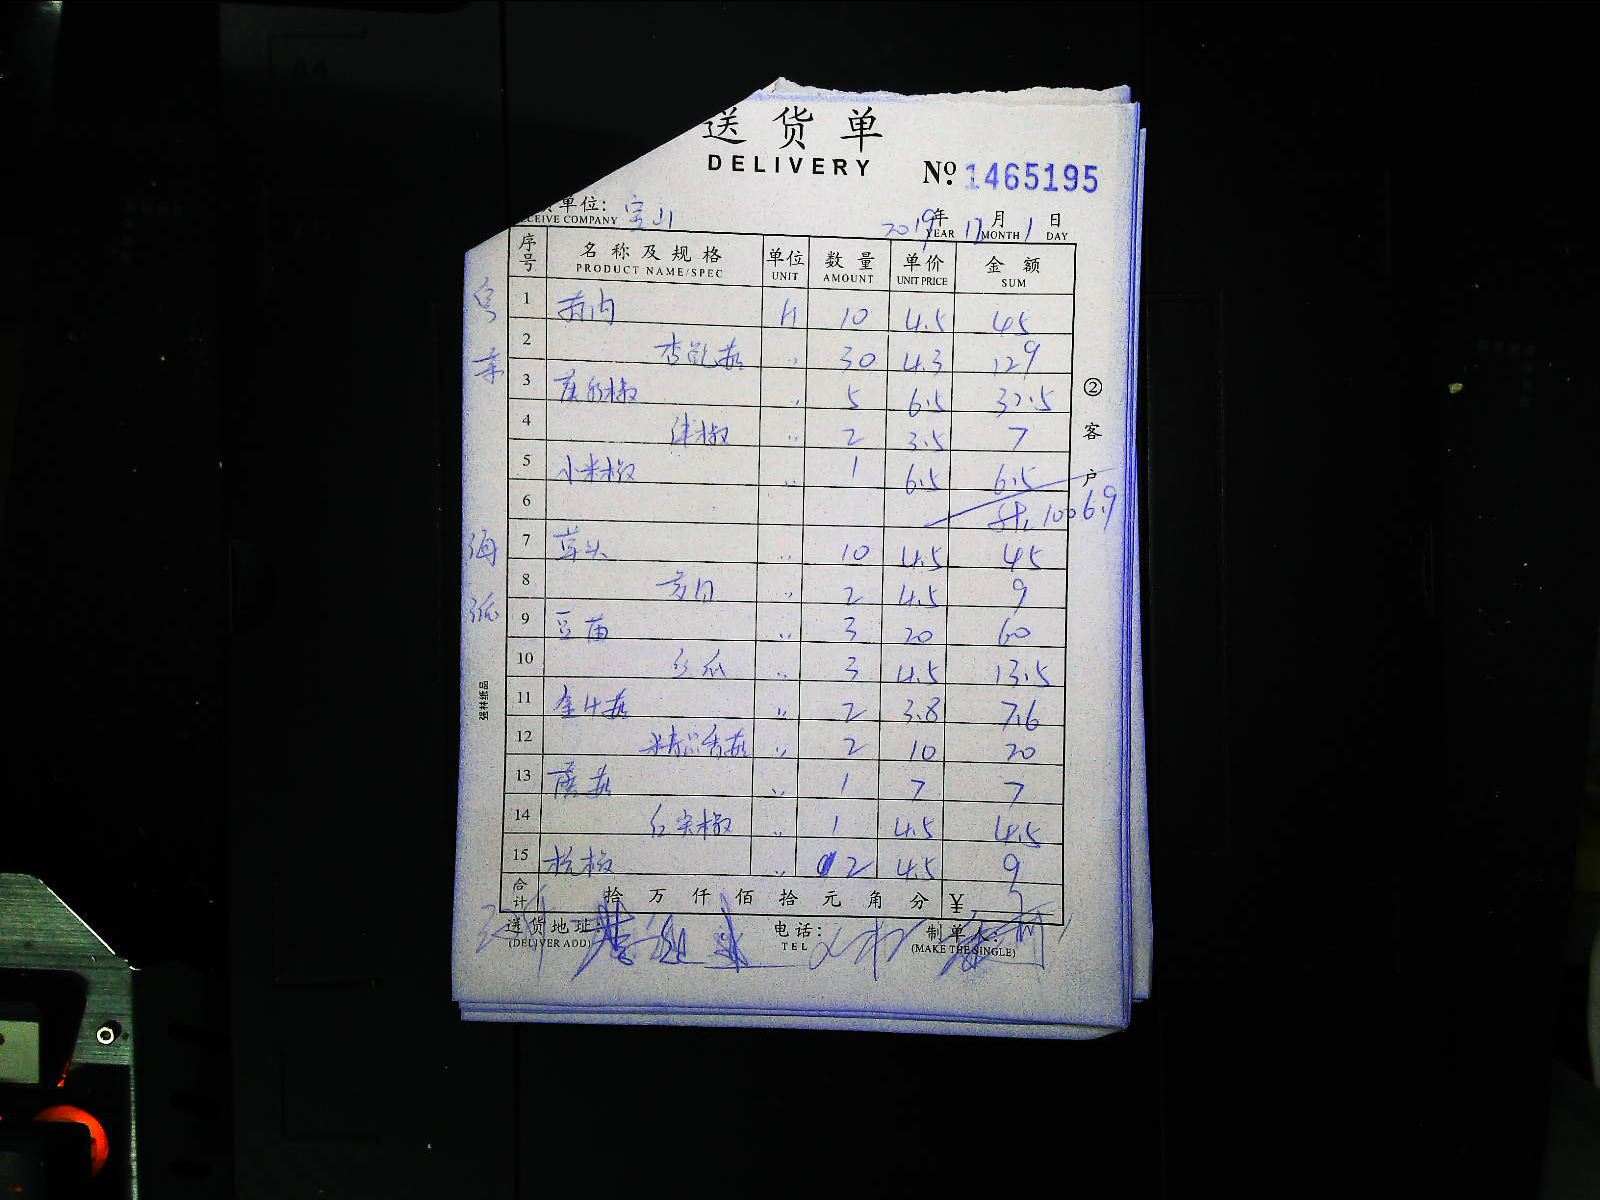 送货单
DELIVERY
No. 1465195
单位: 宝山
CEIVE COMPANY
2019年 12月 1日
YEAR MONTH DAY
序号 名称及规格 单位 数量 单价 金额
PRODUCT NAME/SPEC UNIT AMOUNT UNIT PRICE SUM
1 10 4.5 45
2 杏鲍菇 〃 30 4.3 129
3 〃 5 6.5 32.5
4 洋椒 〃 2 3.5 7
5 小米椒 〃 1 6.5 6.5
6 1006.9
7 草头 〃 10 4.5 45
8 〃 2 4.5 9
9 豆苗 〃 3 20 60
10 丝瓜 〃 3 4.5 13.5
11 金针菇 〃 2 3.8 7.6
12 精品香菇 〃 2 10 20
13 〃 1 7 7
14 红尖椒 〃 1 4.5 4.5
15 〃 2 4.5 9
合计 拾 万 仟 佰 拾 元 角 分 ¥
送货地址: 电话: 制单人:
(DELIVER ADD) TEL (MAKE THE SINGLE)
②客户
强林纸品